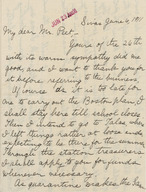 My dear Mr. Peet,
Yours of the 25th
with its warm sympathy did me
good, and I want to thank you for
it before referring to the business.
If you do it is to late for
me to carry out the Boston plan I
shall stay here till school closes
then I intend to go to
I left things rather at loose ends
expecting to be there for the summer
Through the station treasurers
I shall apply to you for funds
whenever necessary.
As quarantine makes the